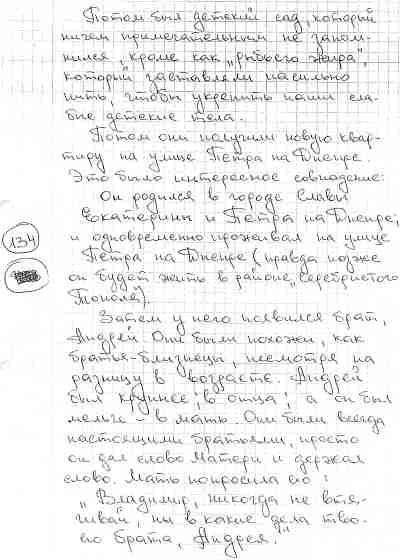 Потом был детский сад, который
ничем примечательным не запом-
нился, кроме как „рыбьего жира",
который заставляли насильно
пить, чтобы укрепить наши сла-
бые детские тела.
Потом они получили новую квар-
тиру на улице Петра на Днепре.
Это было интересное совпадение:
Он родился в городе Славы
Екатерины и Петра на Днепре,
и одновременно проживал на улице
Петра на Днепре (правда позже
он будет жить в районе „Серебристого
Тополя").
134
Затем у него появился брат,
Андрей. Они были похожи, как
братья-близнецы, несмотря на
разницу в возрасте. Андрей
был крупнее; в отца; а он был
мельче – в мать. Они были всегда
настоящими братьями, просто
он дал слово Матери и держал
слово. Мать попросила его:
„Владимир, никогда не втя-
гивай, ни в какие дела тво-
его брата, Андрея."